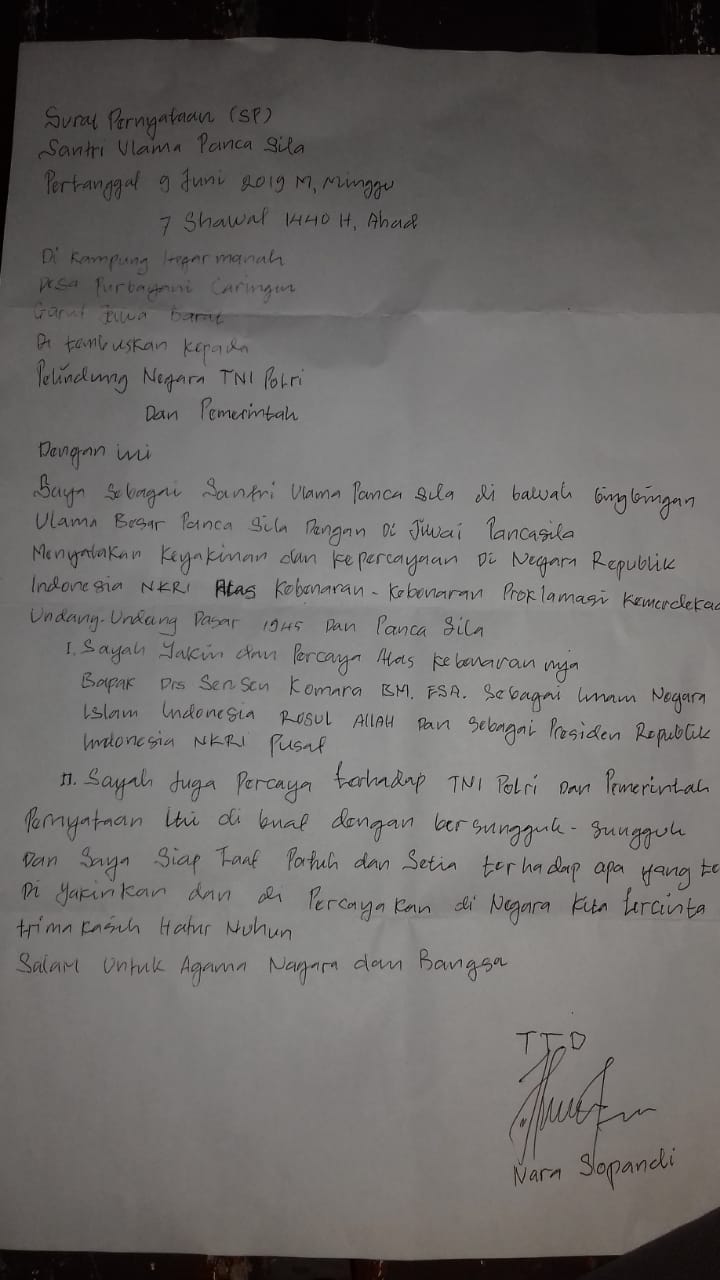 Surat Pernyataan (SP)
Santri Ulama Panca Sila
Pertanggal 9 Juni 2019 M, Minggu
7 Shawal 1440 H, Ahad
Di Kampung Hegarmanah
Desa Purbayani Caringin
Garut Jawa Barat
Di tembuskan kepada
Pelindung Negara TNI Polri
Dan Pemerintah
Dengan ini
Saya Sebagai Santri Ulama Panca Sila di bawah bingbingan
Ulama Besar Panca Sila Dengan Di Jiwai Pancasila
Menyatakan Keyakinan dan kepercayaan Di Negara Republik
Indonesia NKRI Atas Kebenaran - Kebenaran Proklamasi Kemerdekaa
Undang-Undang Dasar 1945 Dan Panca Sila
I. Sayah Yakin dan Percaya Atas kebenaran nya
Bapak Drs Sensen Komara BM. ESA. Sebagai Imam Negara
Islam Indonesia ROSUL ALLAH Dan Sebagai Presiden Republik
Indonesia NKRI Pusat
II. Sayah Juga Percaya terhadap TNI Polri Dan Pemerintah
Pernyataan Ini di buat dengan bersungguh - sungguh
Dan Saya Siap Taat Patuh dan Setia terhadap apa yang te
Di yakinkan dan di Percayakan di Negara Kita tercinta
trima kasih Hatur Nuhun
Salam Untuk Agama Nagara dan Bangsa
TTD
Nara Sopandi